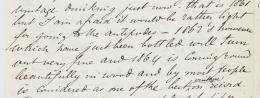 vintage drinking just now. that is 1861
but I am afraid it would be rather light
for going to the antipodes — 1862's however
which have just been bottled will turn
out very fine and 1864 is coming round
beautifully in wood and by most people
is considered as one of the best on record